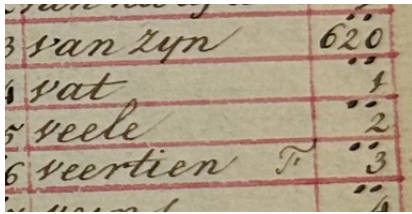 3 van zyn 620
4 vat 1
5 veele 2
6 veertien F. 3
4